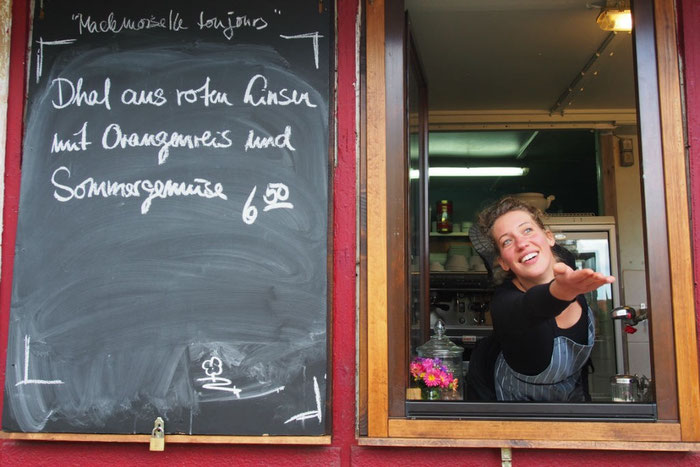 "Mademoiselle toujours"
Dhal aus roten Linsen
mit Orangenreis und
Sommergemüse 6 50